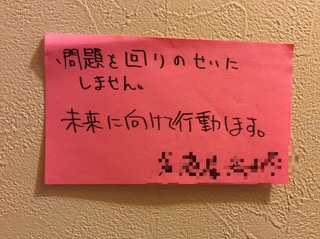 問題を回りのせいに
しません。
未来に向けて行動します。